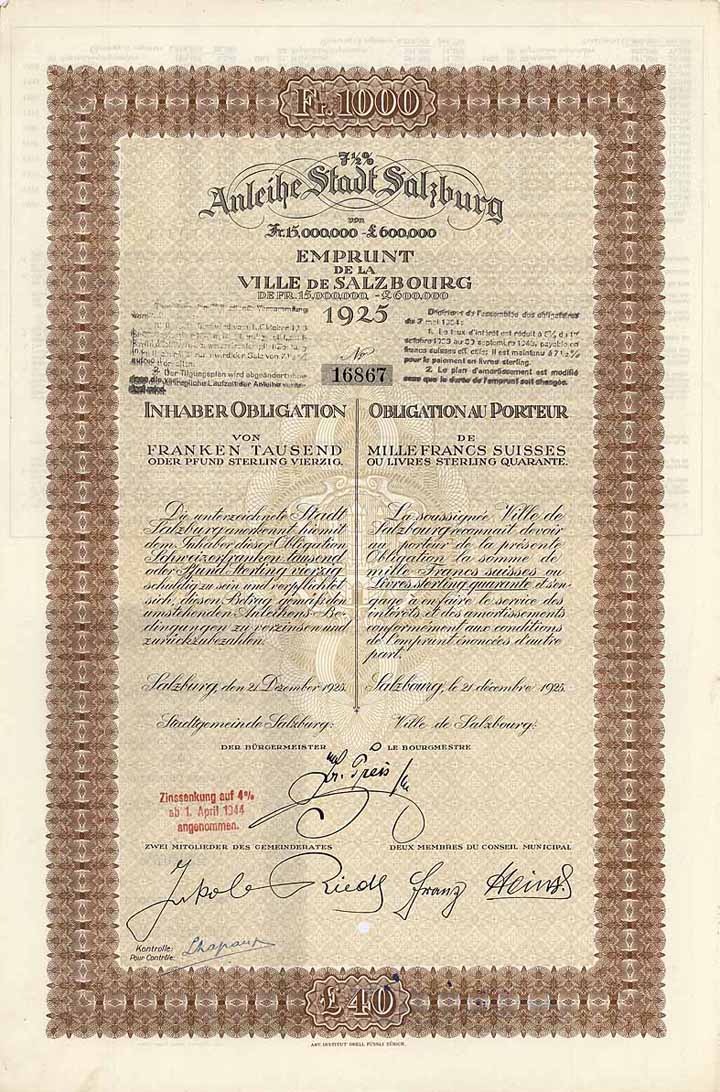 Fr. 1000
7½%
Anleihe Stadt Salzburg
von
Fr. 15,000,000 - £ 600,000
EMPRUNT
DE LA
VILLE DE SALZBOURG
DE FR. 15,000,000 - £ 600,000
1925
Décisions de l'assemblée des obligataires
du 2 mai 1934:
1. Le taux d'intérêt est réduit à
francs suisses eff. etile; il est maintenu à 7½%
pour le paiement en livres sterling.
2. Le plan d'amortissement est modifié
sans que la durée de l'emprunt soit changée.
2. Der Tilgungsplan wird abgeändert
ursprüngliche Laufzeit der Anleihe
No
16867
INHABER OBLIGATION
VON
FRANKEN TAUSEND
ODER PFUND STERLING VIERZIG.
Die unterzeichnete Stadt
Salzburg anerkennt hiemit
dem Inhaber dieser Obligation
Schweizerfranken tausend
oder Pfund Sterling vierzig
schuldig zu sein und verpflichtet
sich, diesen Betrag gemäß den
umstehenden Anleihens-Be-
dingungen zu verzinsen und
zurückzubezahlen.
Salzburg, den 21. Dezember 1925.
Stadtgemeinde Salzburg:
DER BÜRGERMEISTER
OBLIGATION AU PORTEUR
DE
MILLE FRANCS SUISSES
OU LIVRES STERLING QUARANTE.
La soussignée Ville de
Salzbourg reconnait devoir
au porteur de la présente
Obligation la somme de
mille Francs suisses ou
livres sterling quarante et s'en-
gage à en faire le service des
intérêts et des amortissements
conformément aux conditions
de l'emprunt énoncées d'autre
part.
Salzbourg, le 21 décembre 1925.
Ville de Salzbourg:
LE BOURGMESTRE
Preis
Zinssenkung auf 4%
ab 1. April 1944
angenommen.
ZWEI MITGLIEDER DES GEMEINDERATES
DEUX MEMBRES DU CONSEIL MUNICIPAL
Jakob Riedl Franz Heinz
Kontrolle:
Pour Contrôle:
£ 40
ART. INSTITUT ORELL FÜSSLI ZÜRICH.